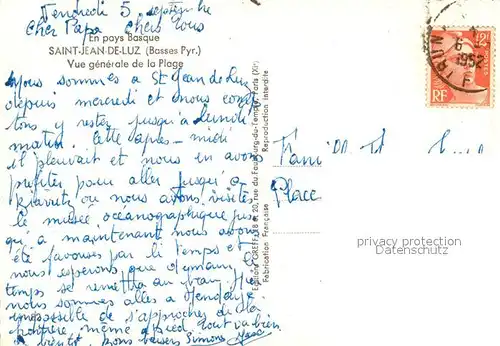 Vendredi 5 septembre
Cher Papa chers tous
En pays Basque
SAINT-JEAN-DE-LUZ (Basses Pyr.)
Vue générale de la Plage
Nous sommes à St Jean de Luz
depuis mercredi et nous comp
tons y rester jusqu'à lundi
matin. Cette après-midi
il pleuvait et nous en avons
profiter pour aller jusqu'à
Biarritz où nous avons visités
le musée océanographique jus
qu'à maintenant nous avons
été favorisés par le temps et
nous espérons que demain le
temps se remettra au beau
nous sommes allés à Hendaye
impossible de s'approcher de la
frontière, même à pied, tout va bien
à bientôt, bons baisers Simone
Editions GREFF, 18 & 20, rue du Faubourg-du-Temple, Paris (XIe)
Fabrication Française
Reproduction interdite
Place
12F
RF
6
1952
privacy protection
Datenschutz